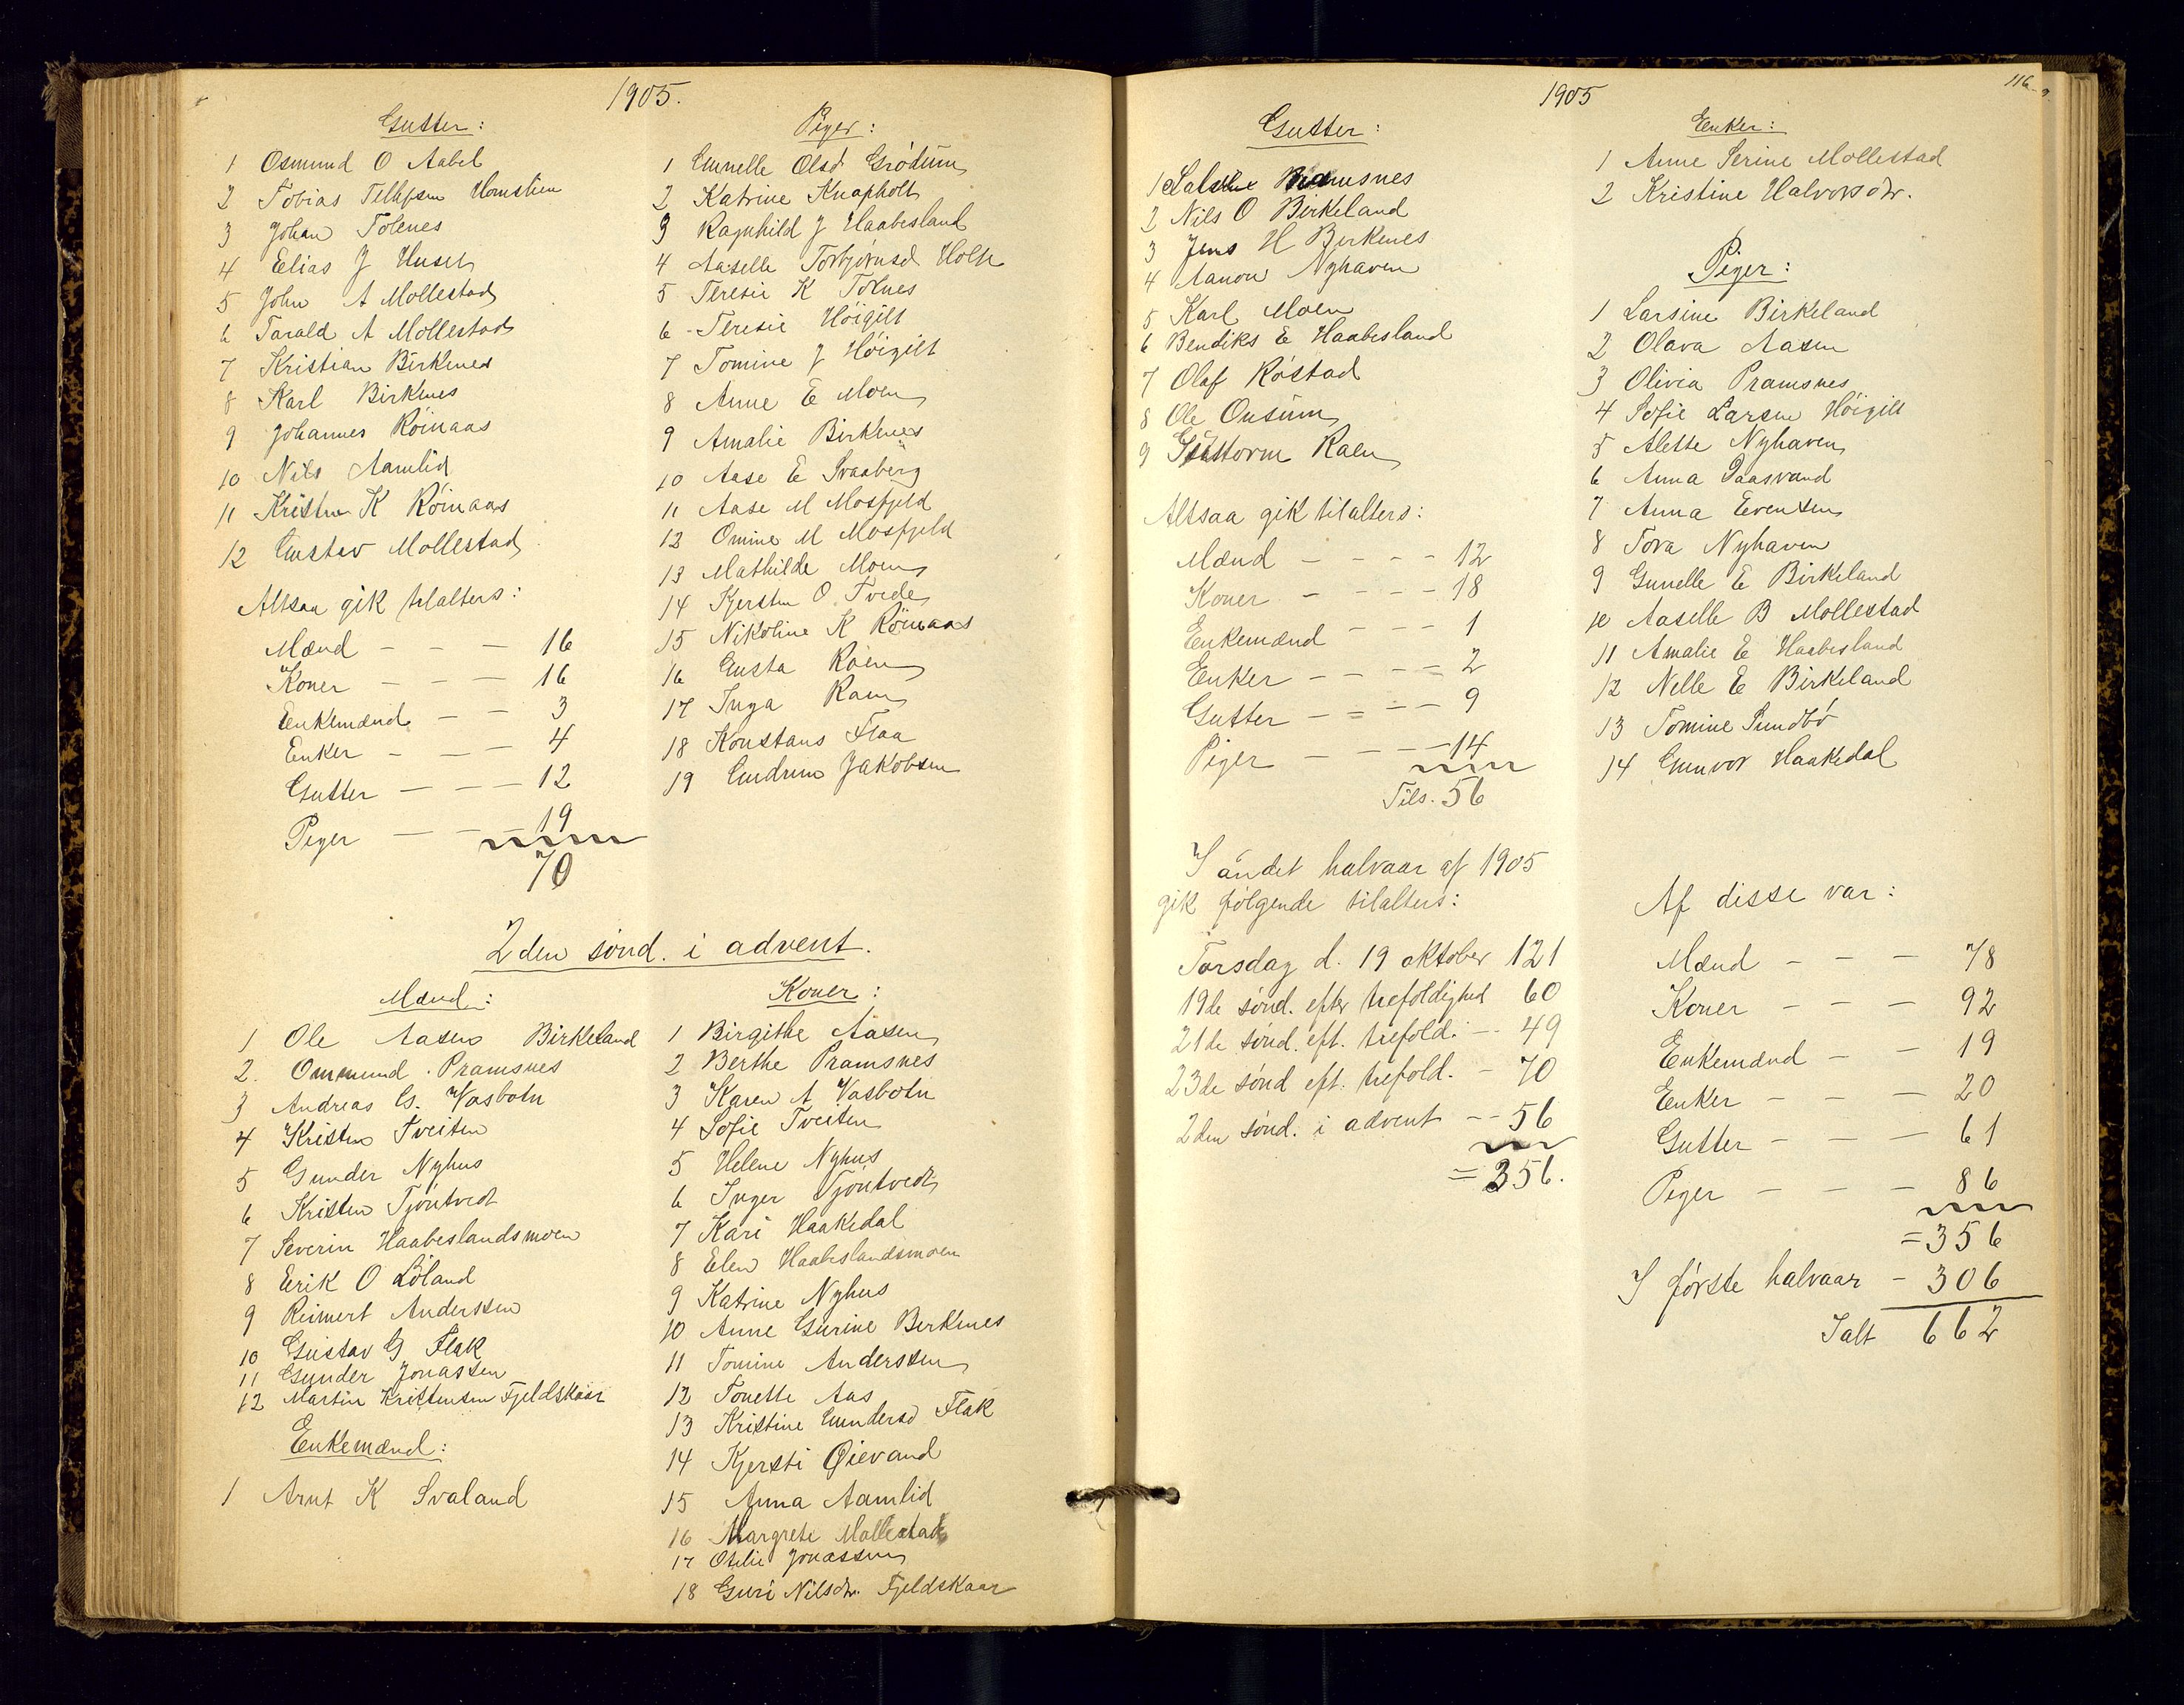 1905.
Gutter:
1 Osmund O Aabel
2 Tobias Tellefsen
3 Johan Tolenes
4 Elias J
5 John A Mollestad
6 Tarald A Mollestad
7 Kristian Birkenes
8 Karl Birkenes
9 Johannes Röinaas
10 Nils Aamlid
11 Kristen K Röinaas
12 Gustav Mollestad
Altsaa gik tilalters:
Mænd - - - 16
Koner - - - 16
Enkemænd - - 3
Enker - - - 4
Gutter - - - 12
Piger - - - 19
70
Piger:
1 Gunelle Olsd Grödum
2 Katrine Knapholt
3 Ragnhild J Haabesland
4 Aaselle Torbjörnsd Holte
5 Teresie K Tolnes
6 Teresie Höigilt
7 Tomine J Höigilt
8 Anne E Moen
9 Amalie Birkenes
10 Aase E Svaaberg
11 Aase M Mosfjeld
12 Omine M Mosfjeld
13 Mathilde Moen
14 Kjersten O Tvede
15 Nikoline K Röinaas
16 Gusta Raen
17 Inga Raen
18 Konstans Flaa
19 Gudrun Jakobsen
2den sönd. i advent.
Mænd:
1 Ole Aasen Birkeland
2. Ommund Pramsnes
3 Andreas G. Vasbotn
4 Kristen Tveiten
5 Gunder Nyhus
6 Kristen Tjöntvedt
7 Severin Haabeslandsmoen
8 Erik O Löland
9 Reimert Anderssen
10 Gustav G Flak
11 Gunder Jonassen
12 Martin Kristensen Fjeldskaar
Enkemænd:
1 Arnt K Svaland
Koner:
1 Birgithe Aasen
2 Berthe Pramsnes
3 Karen A Vasbotn
4 Sofie Tveiten
5 Helene Nyhus
6 Inger Tjöntvedt
7 Kari Haakedal
8 Elen Haabeslandsmoen
9 Katrine Nyhus
10 Anne Gurine Berkenes
11 Tomine Anderssen
12 Tonette Aas
13 Kristine Gundersd Flak
14 Kjersti Øievand
15 Anna Aamlid
16 Margrete Mollestad
17 Otelie Jonassen
18 Guri Nilsdtr. Fjeldskaar
1905
116
Gutter:
1 Pramsnes
2 Nils O Birkeland
3 Jens H Birkenes
4 Aanon Nyhaven
5 Karl Moen
6 Bendiks E Haabesland
7 Olaf Röstad
8 Ole Onsum
9 Guttorm Raen
Altsaa gik tilalters:
Mænd - - - - 12
Koner - - - - 18
Enkemænd - - - 1
Enker - - - - 2
Gutter - - - - 9
Piger - - - - 14
Tils. 56
Enker:
1 Anne Serine Mollestad
2 Kristine Halvorsdtr.
Piger:
1 Larsine Birkeland
2 Olava Aasen
3 Olivia Pramsnes
4 Sofie Larsen Höigilt
5 Alette Nyhaven
6 Anna Daasvand
7 Anna Evensen
8 Tora Nyhaven
9 Gunelle E Birkeland
10 Aaselle B Mollestad
11 Amalie E Haabesland
12 Nelle E Birkeland
13 Tomine Sundbö
14 Gunvor Haakedal
I andet halvaar af 1905
gik følgende tilalters:
Torsdag d. 19 oktober 121
19de sönd. efter trefoldighed 60
21de sönd. eft. trefold. - - 49
23de sönd eft. trefold. - 70
2den sönd. i advent - - 56
= 356.
Af disse var:
Mænd - - - 78
Koner - - - 92
Enkemænd - - 19
Enker - - - 20
Gutter - - - 61
Piger - - - 86
= 356
I første halvaar - 306
Ialt 662